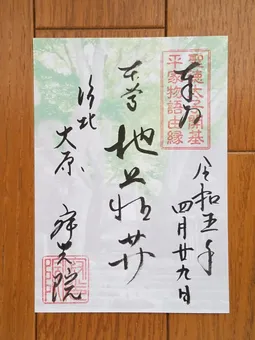 聖徳太子開基
平家物語由縁
奉拝
令和五年
四月廿九日
本尊 地蔵菩薩
洛北 大原 寂光院